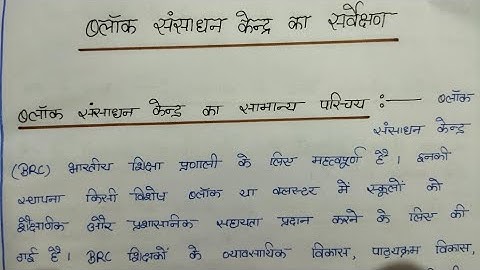 ब्लॉक संसाधन केन्द्र का सर्वेक्षण
ब्लॉक संसाधन केन्द्र का सामान्य परिचय :— ब्लॉक
संसाधन केन्द्र
(BRC) भारतीय शिक्षा प्रणाली के लिए महत्वपूर्ण है। इनकी
स्थापना किसी विशेष ब्लॉक या क्लस्टर में स्कूलों को
शैक्षणिक और प्रशासनिक सहायता प्रदान करने के लिए की
गई है। BRC शिक्षकों के व्यावसायिक विकास, पाठ्यक्रम विकास,